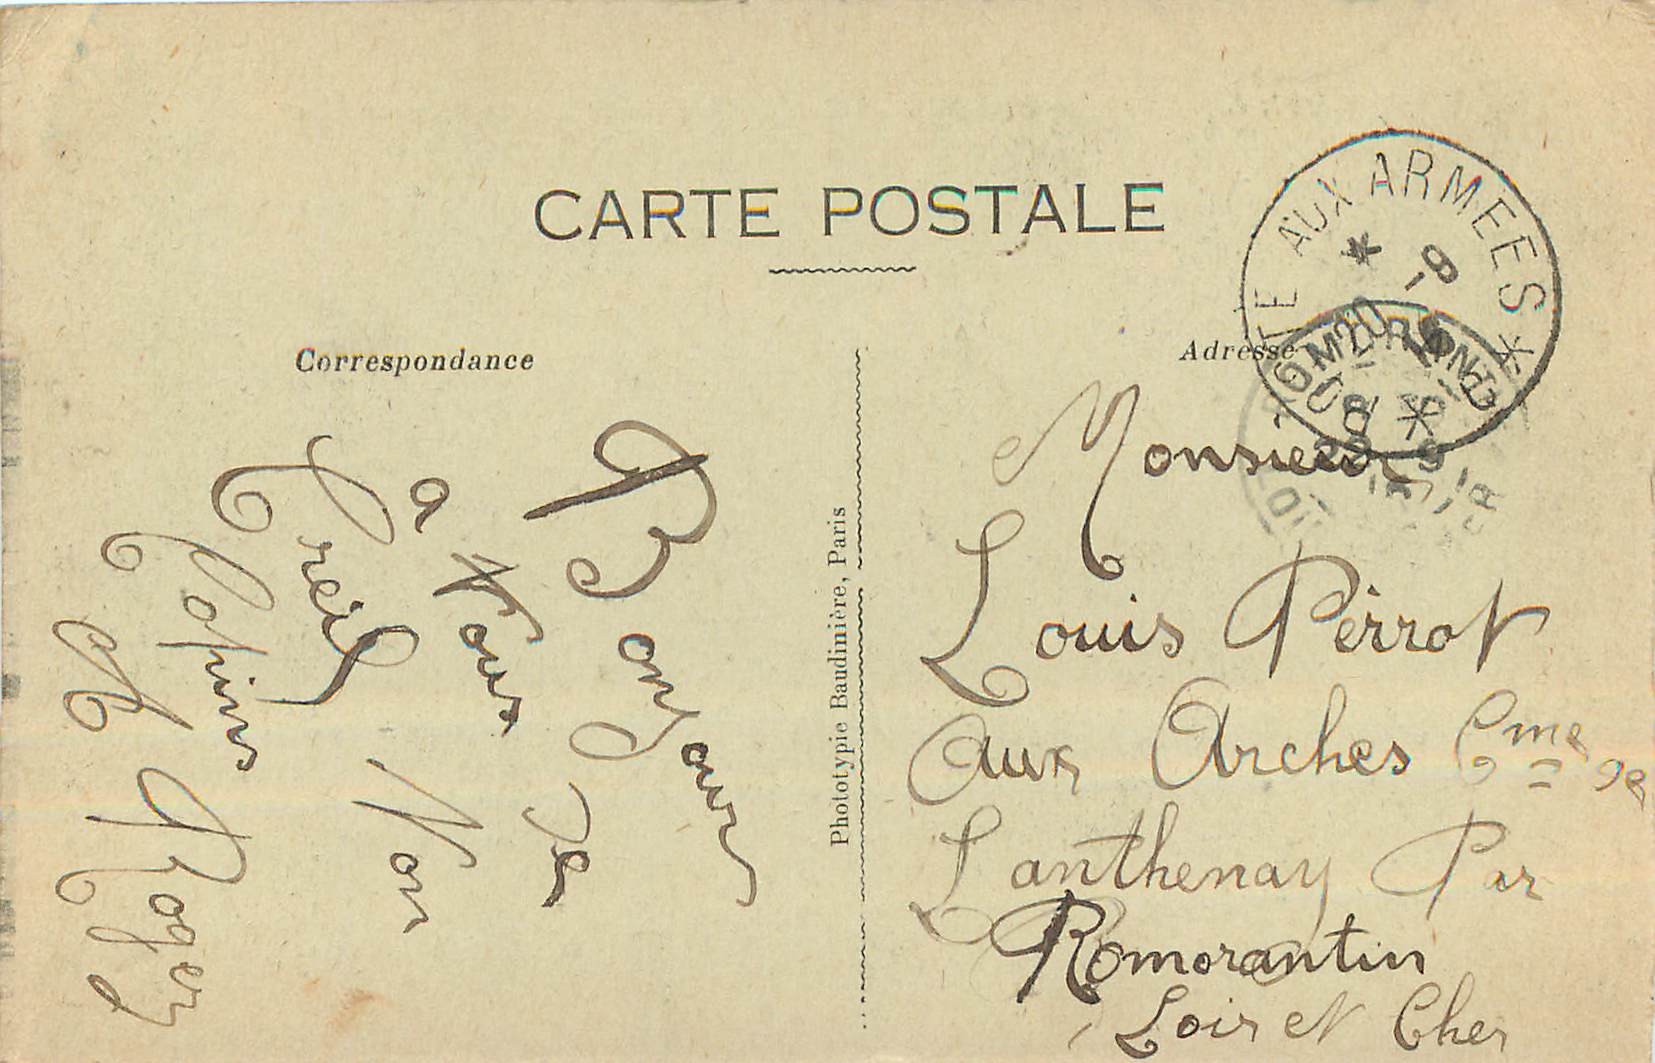 CARTE POSTALE
Correspondance
Adresse
Bonjour
a Vous De
Creil Ton
Copins
Roger
Phototy­pie Baudinière, Paris
AUX ARMEES *
* -9
Monsieur
Louis Perrot
aux Arches Cme de
Lanthenay Par
Romorantin
Loir et Cher